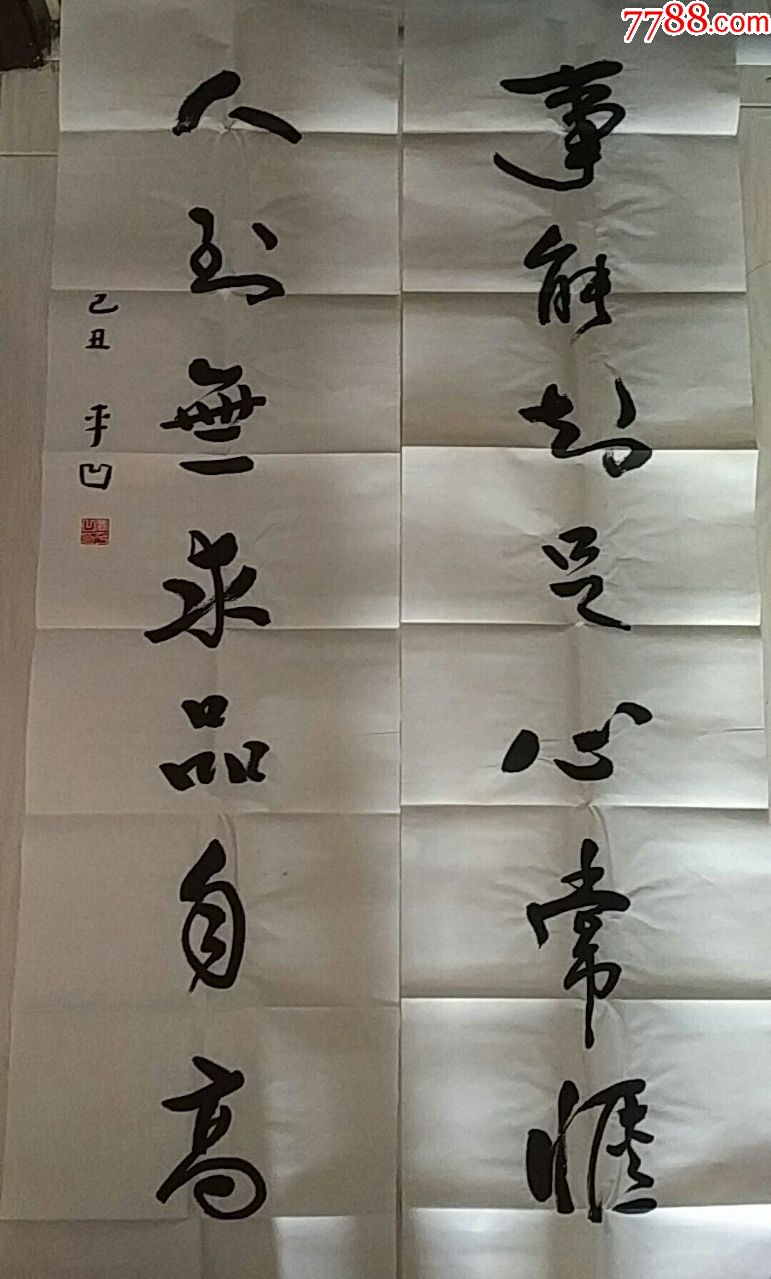 7788.com
事能知足心常惬
人到無求品自高
己丑 平凹